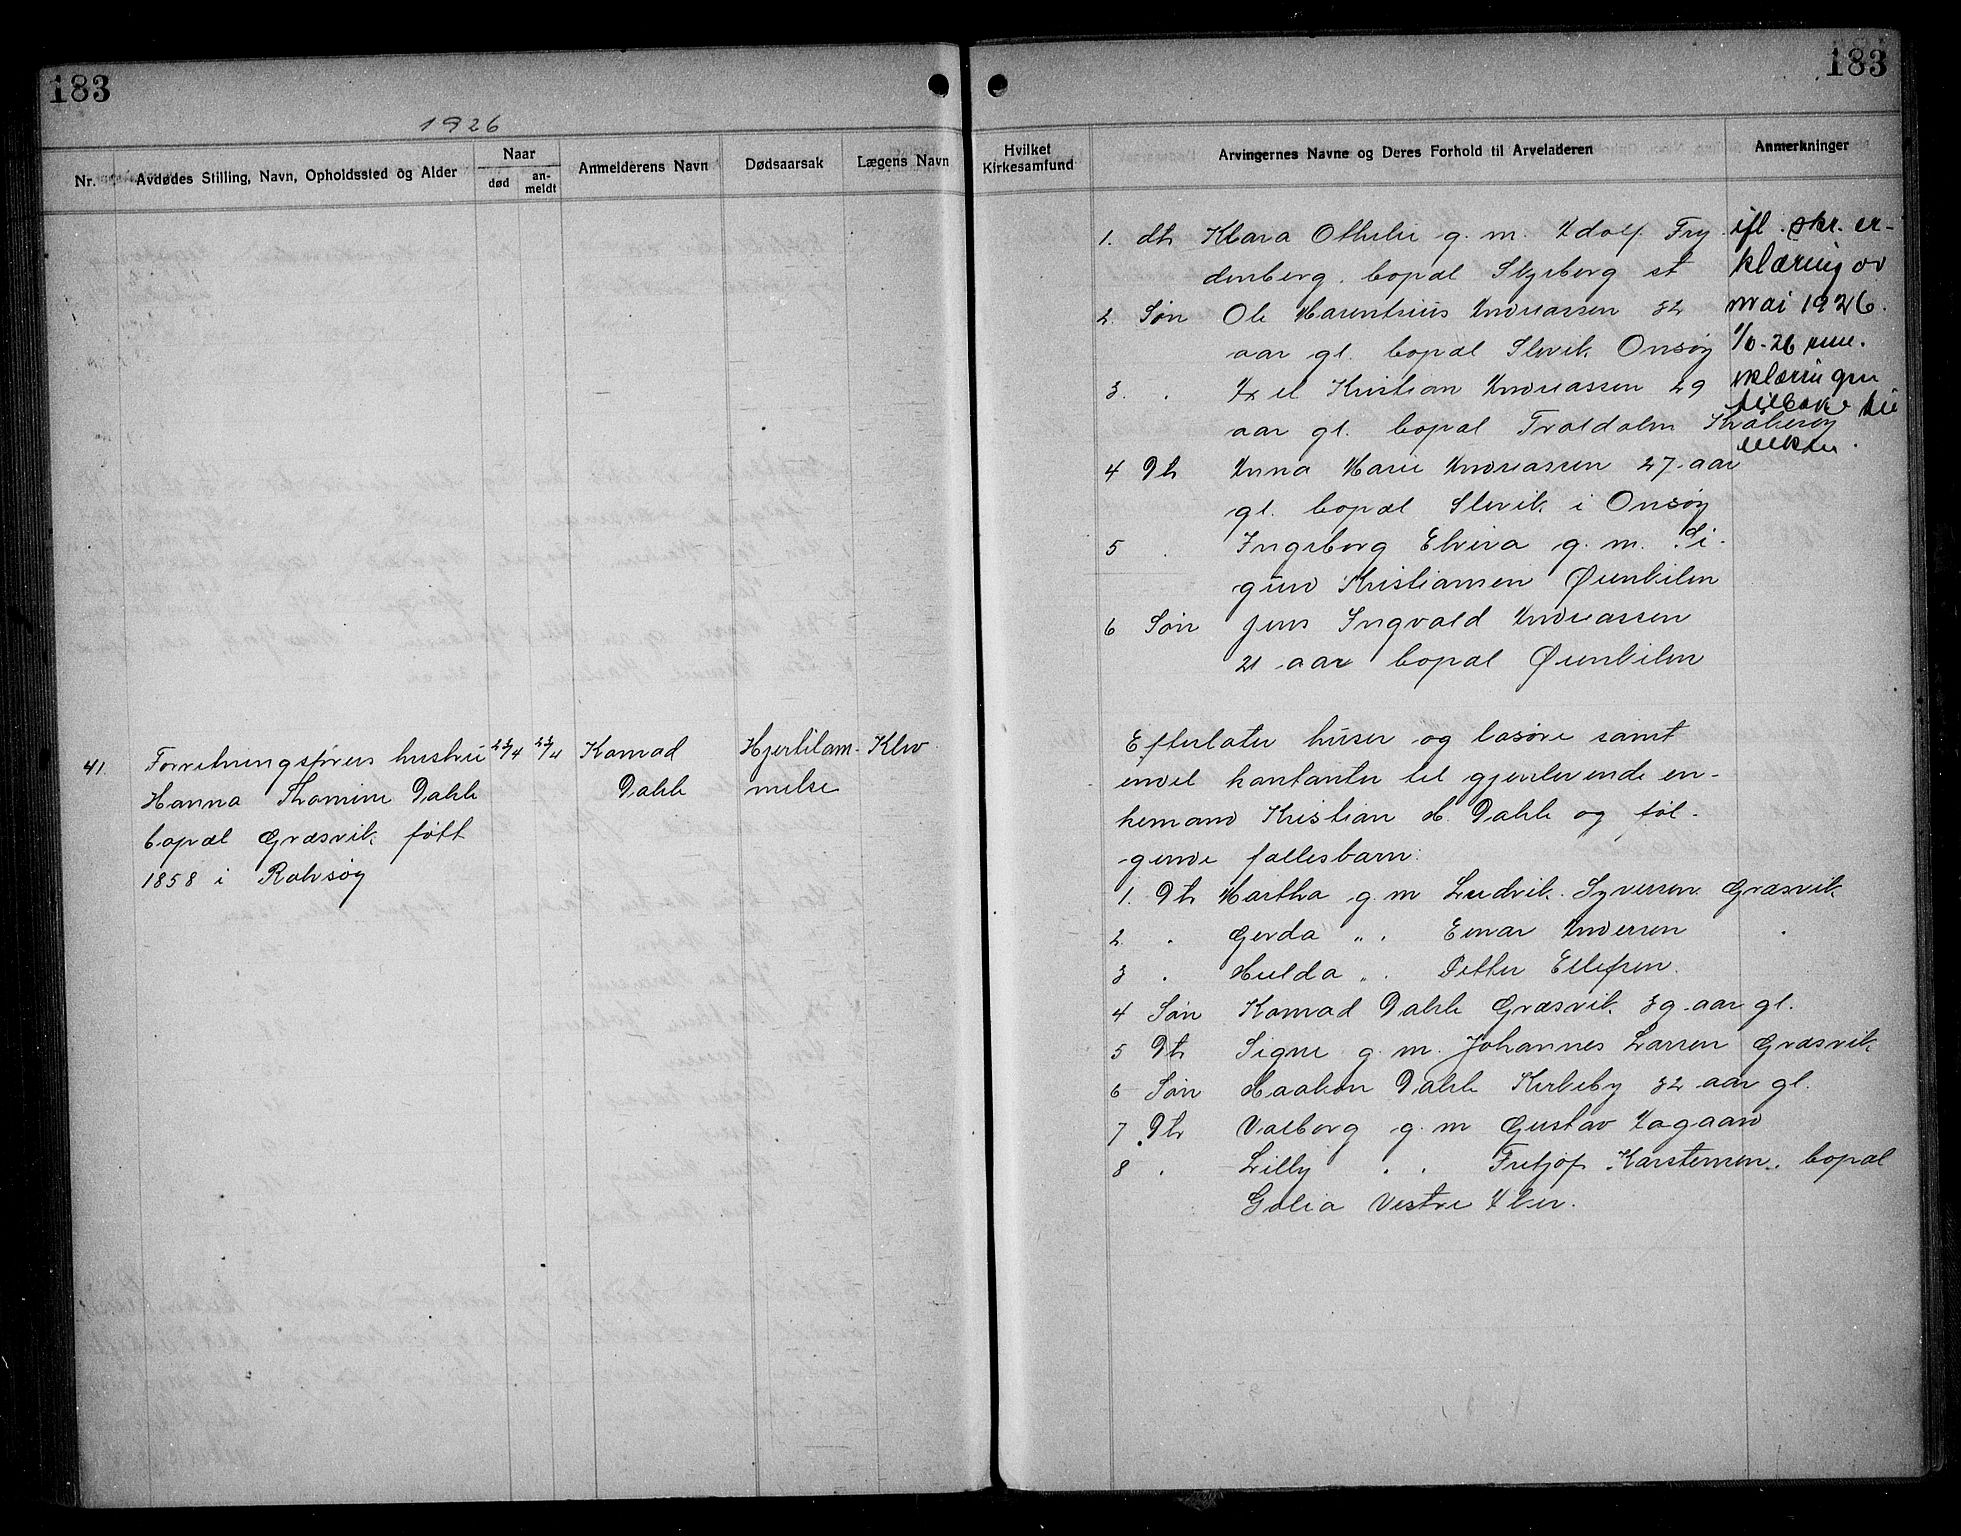 183
1926
Nr.
Avdødes Stilling, Navn, Opholdssted og Alder
Naar
død
an-
meldt
Anmelderens Navn
Dødsaarsak
Lægens Navn
41. Forretningsførers hustru 23/4 23/4 Konrad Hjertelam- Klev
Hanna Thomine Dahle Dahle melse
bopæl Græsvik født
1858 i Rolvsøy
183
Hvilket
Kirkesamfund
Arvingernes Navne og Deres Forhold til Arveladeren
Anmerkninger
1. dtr Klara Othelie g. m. Adolf Fry-
denberg. bopæl Slysberg st
2. Søn Ole Marentsius Andreassen 32
aar gl. bopæl Slevik Onsøy
3. " Axel Kristian Andreassen 29
aar gl. bopæl Traldalen Kråkerøy
4 Dtr Anna Marie Andreassen 27 aar
gl. bopæl Slevik i Onsøy
5 " Ingeborg Elvira g. m. Si-
gurd Kristiansen Ørenkilen
6 Søn Jens Ingvald Andreassen
21 aar bopæl Ørenkilen
ifl. skr. er-
klæring av
mai 1926.
1/6-26
erklæringen
tilbake til
enken.
Efterlater huser og løsøre samt
endel kontanter til gjenlevende en-
kemand Kristian H. Dahle og føl-
gende fællesbarn:
1. Dtr Martha g. m Ludvik Syversen Græsvik
2. " Gerda " " Einar Andersen "
3 " Hulda " " Petter Ellefsen.
4 Søn Konrad Dahle Græsvik 39 aar gl.
5 Dtr Signe g. m. Johannes Larsen Græsvik
6 Søn Haakon Dahle Kirkeby 32 aar gl.
7 Dtr Valborg g. m Gustav Aagaard
8 " Lilly " " Fritjof Karstensen. bopæl
Golia Vestre Aker.